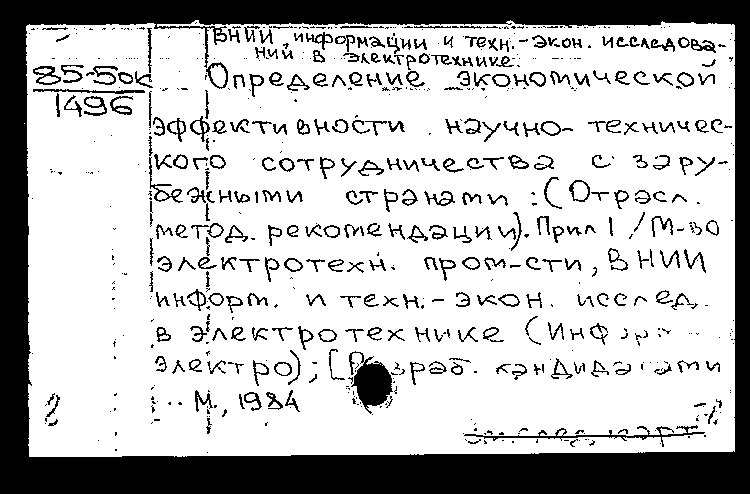 ВНИИ информации и техн.-экон. исследова-
ний в электротехнике.
85-5ок
1496
Определение экономической
эффективности научно-техничес-
кого сотрудничества с зару-
бежными странами : (Отрасл.
метод. рекомендации). Прил 1 / М-во
электротехн. пром-сти, ВНИИ
информ. и техн.-экон. исслед.
в электротехнике (Информ
электро); [Разраб. кандидатами
.. М., 1984
см. след. карт.